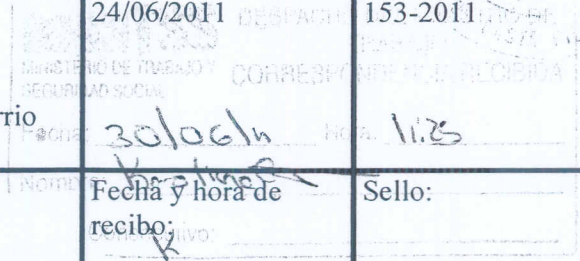 24/06/2011 153-2011
DESPACHO
MINISTERIO DE TRABAJO Y
SEGURIDAD SOCIAL
CORRESPONDENCIA RECIBIDA
rrio
Fecha: 30/06/11 Hora: 11:25
Nombre:
Fecha y hora de recibo: Sello: